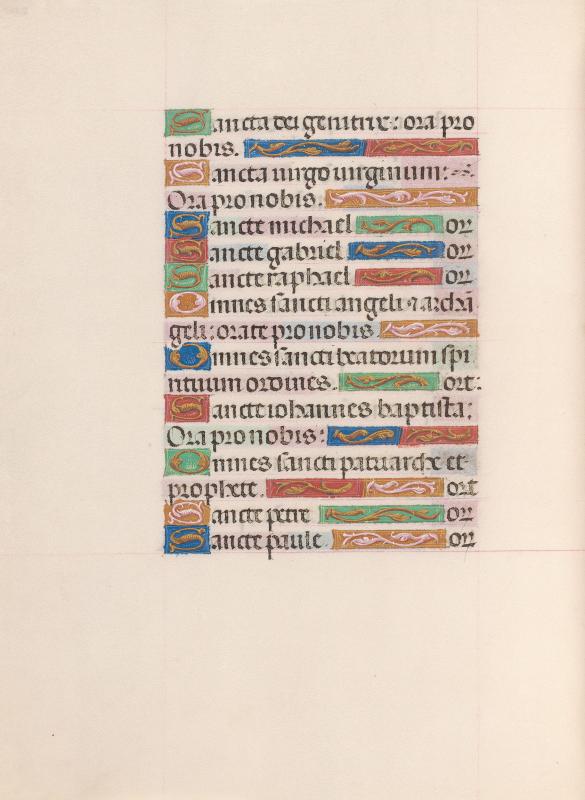 Sancta dei genitrix: ora pro
nobis.
Sancta uirgo uirginum:
Ora pro nobis.
Sancte michael or̃
Sancte gabriel or̃
Sancte raphael or̃
Omnes sancti angeli ⁊ archã
geli: orate pro nobis
Omnes sancti beatorum spi
rituum ordines. ort:
Sancte iohannes baptista:
Ora pro nobis:
Omnes sancti patriarche et
prophete. ort
Sancte petre or̃
Sancte paule or̃